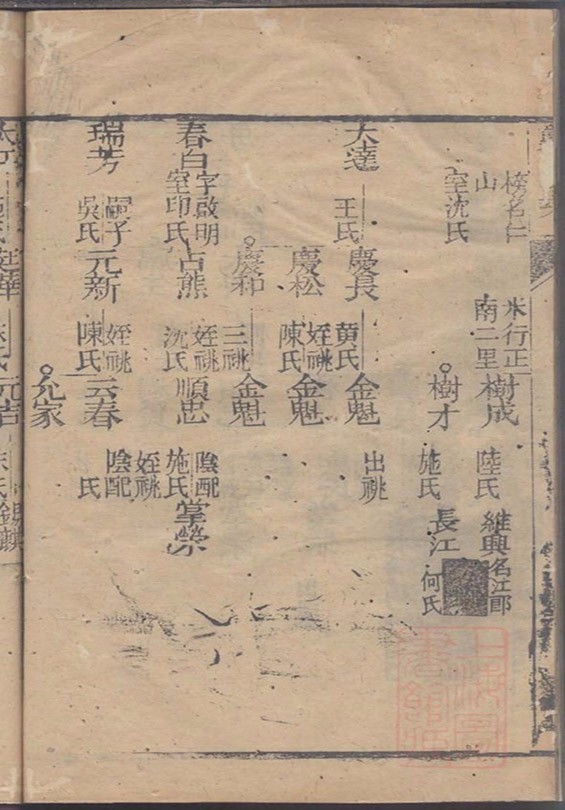 榜名仁山
室沈氏
木行正南二里
樹成
陸氏
維興
名江郎
樹才
施氏
長江
何氏
大達
王氏
慶長
黄氏
金魁
出祧
慶松
姪祧
陳氏
金魁
慶和
三祧
金魁
春白
字啟明
室印氏
占熊
姪祧
沈氏
順忠
陰配
施氏
掌榮
姪祧
瑞芳
嗣子
吳氏
元新
姪祧
陳氏
云春
陰配
氏
允家
元吉